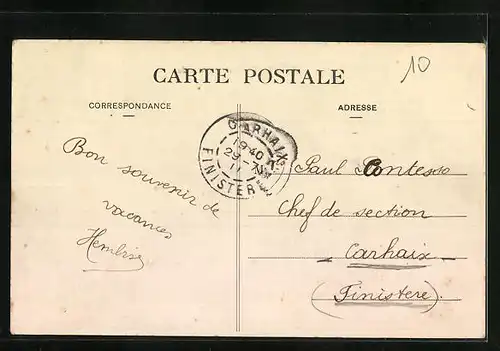 CARTE POSTALE
10
CORRESPONDANCE
ADRESSE
CARHAIX
19 40
29 - 7
11
FINISTERE
Bon souvenir de
vacances
Paul
Chef de section
Carhaix
(Finistere)